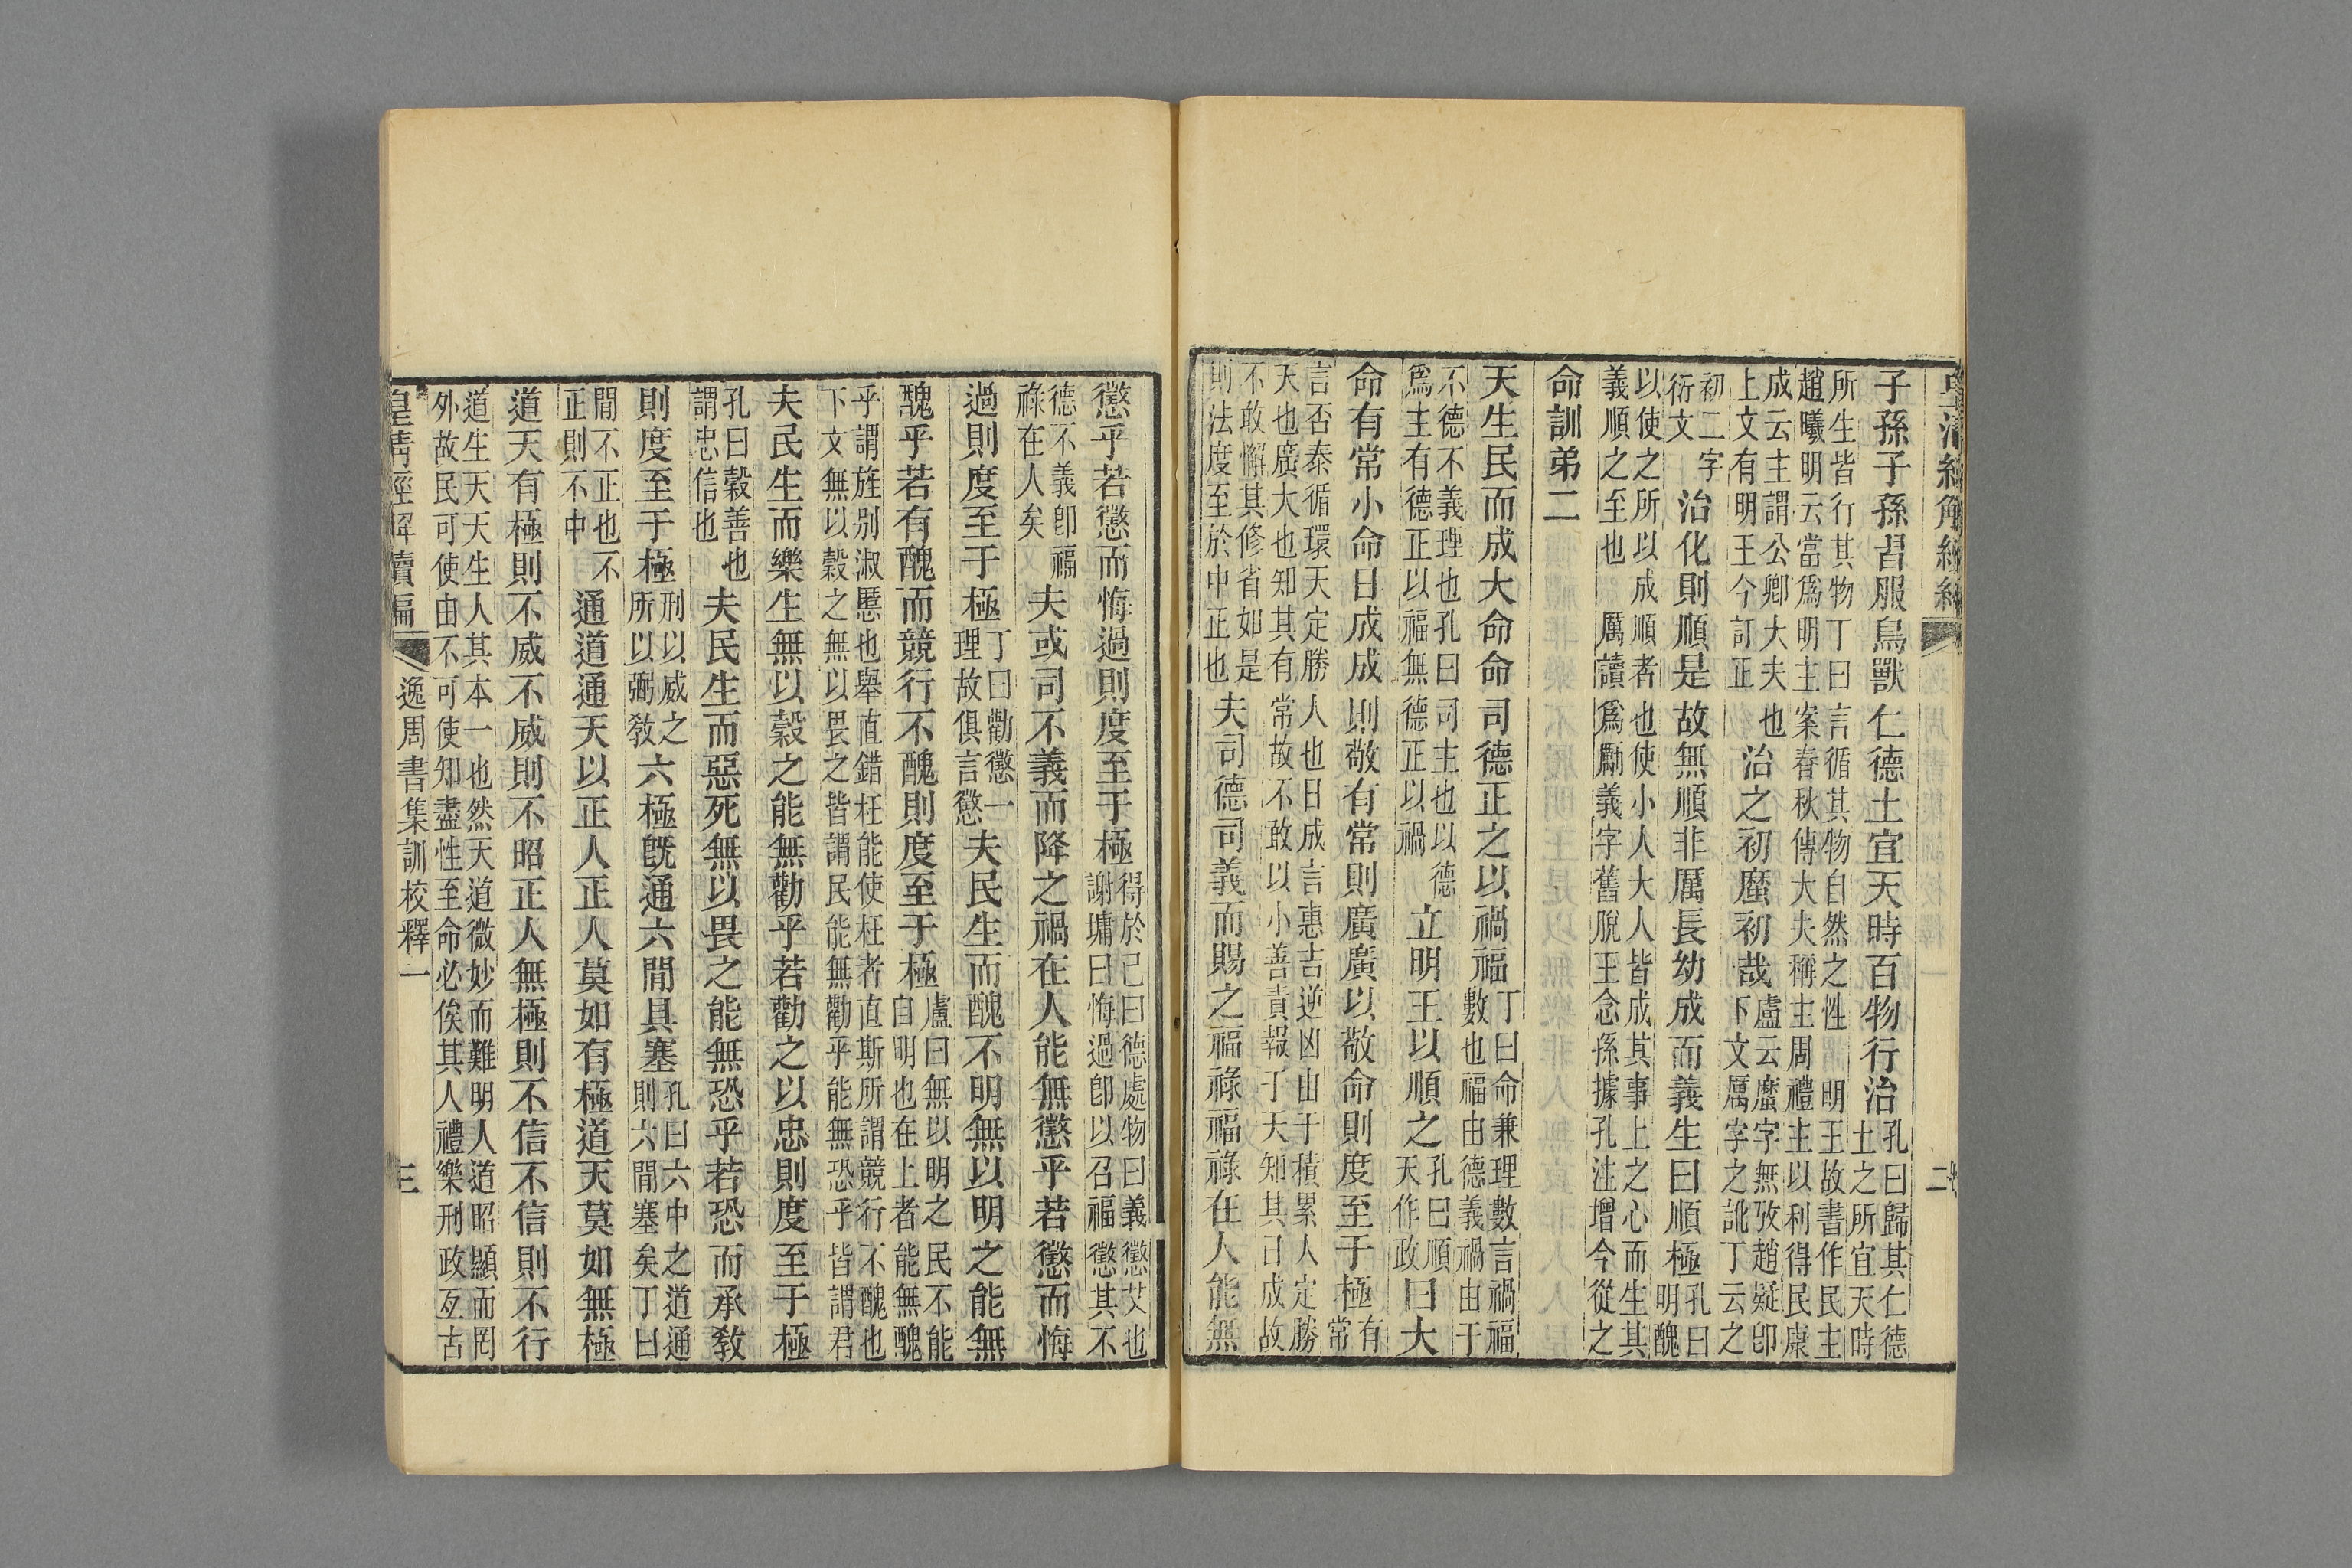 子孫子孫習服鳥獸仁德土宜天時百物行治孔曰歸其仁德土之所宜天時
所生皆行其物丁曰言循其物自然之性 明王故書作民主趙曦明云當爲明主案春秋傳大夫稱主周禮主以利得民康
成云主謂公卿大夫也上文有明王今訂正治之初初哉盧云字無攷趙疑卽下文厲字之訛丁云之
初二字衍文治化則順是故無順非厲長幼成而義生曰順極孔曰明醜
以使之所以成順者也使小人大人皆成其事上之心而生其義順之至也 厲讀爲勵義字舊脫王念孫據孔注增今從之
命訓弟二
天生民而成大命命司德正之以禍福丁曰命兼理數言禍福數也福由德義禍由于
不德不義理也孔曰司主也以德爲主有德正以福無德正以禍立明王以順之孔曰順天作政曰大
命有常小命日成成則敬有常則廣廣以敬命則度至于極有常
言否泰循環天定勝人也日成言惠吉逆凶由于積累人定勝天也廣大也知其有常故不敢以小善責報于天知其日成故
不敢懈其修省如是則法度至於中正也夫司德司義而賜之福祿福祿在人能無
懲乎若懲而悔過則度至于極得於己曰德處物曰義懲艾也謝墉曰悔過卽以召福懲其不
德不義卽福祿在人矣夫或司不義而降之禍在人能無懲乎若懲而悔
過則度至于極丁曰勸懲一理故俱言懲夫民生而醜不明無以明之能無
醜乎若有醜而競行不醜則度至于極盧曰無以明之民不能自明也在上者能無醜
乎謂旌别淑慝也舉直錯枉能使枉者直斯所謂競行不醜也下文無以穀之無以畏之皆謂民能無勸乎能無恐乎皆謂君
夫民生而樂生無以穀之能無勸乎若勸之以忠則度至于極
孔曰穀善也謂忠信也夫民生而惡死無以畏之能無恐乎若恐而承敎
則度至于極刑以威之所以弼敎六極旣通六閒具塞孔曰六中之道通則六閒塞矣丁曰
閒不正也不正則不中通道通天以正人正人莫如有極道天莫如無極
道天有極則不威不威則不昭正人無極則不信不信則不行
道生天天生人其本一也然天道微妙而難明人道昭顯而罔外故民可使由不可使知盡性至命必俟其人禮樂刑政亙古
皇淸經解續編 逸周書集訓校釋一 三